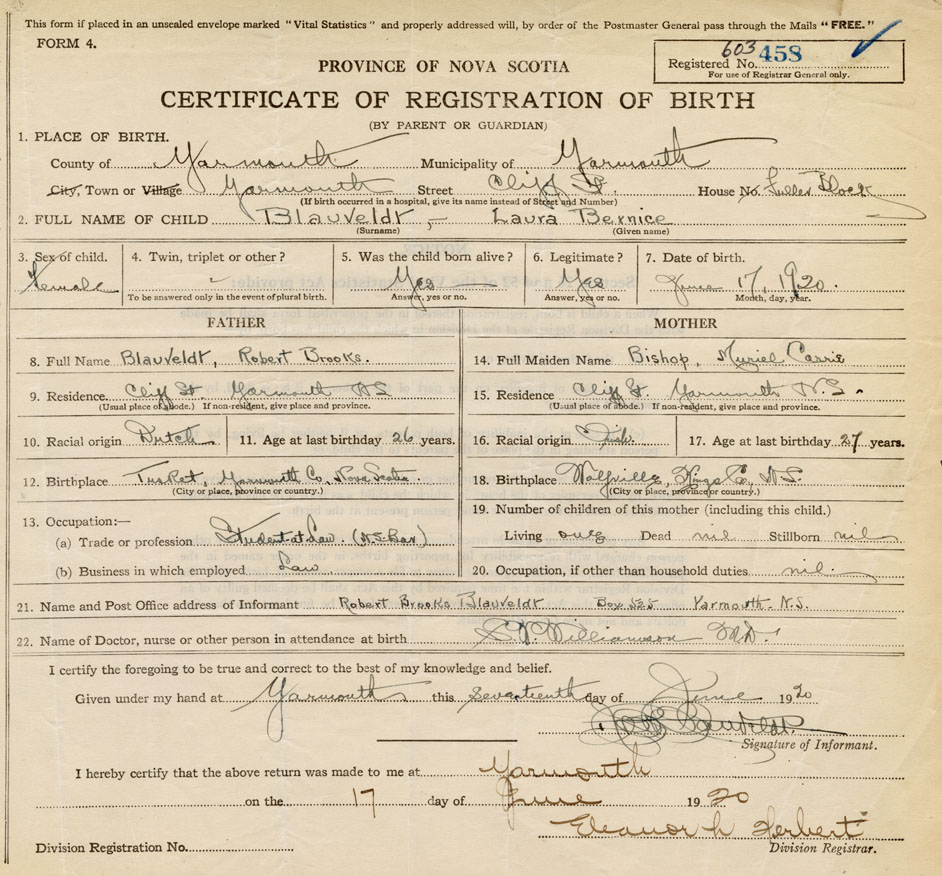 This form if placed in an unsealed envelope marked "Vital Statistics" and properly addressed will, by order of the Postmaster General pass through the Mails "FREE."
FORM 4.
603 458
Registered No.
For use of Registrar General only.
PROVINCE OF NOVA SCOTIA
CERTIFICATE OF REGISTRATION OF BIRTH
(BY PARENT OR GUARDIAN)
1. PLACE OF BIRTH.
County of Yarmouth Municipality of Yarmouth
City, Town or Village Yarmouth Street Cliff St. House No. Fuller Block
(If birth occurred in a hospital, give its name instead of Street and Number)
2. FULL NAME OF CHILD Blauveldt, Laura Bernice
(Surname) (Given name)
3. Sex of child. 4. Twin, triplet or other? 5. Was the child born alive? 6. Legitimate? 7. Date of birth.
Female - Yes Yes June 17, 1920.
To be answered only in the event of plural birth. Answer, yes or no. Answer, yes or no. Month, day, year.
FATHER MOTHER
8. Full Name Blauveldt, Robert Brooks. 14. Full Maiden Name Bishop, Muriel Carrie
9. Residence Cliff St. Yarmouth NS 15. Residence Cliff St. Yarmouth N.S.
(Usual place of abode.) If non-resident, give place and province. (Usual place of abode.) If non-resident, give place and province.
10. Racial origin Dutch 11. Age at last birthday 26 years. 16. Racial origin 17. Age at last birthday 27 years.
12. Birthplace Tusket, Yarmouth Co, Nova Scotia 18. Birthplace Wolfville, Kings Co, N.S.
(City or place, province or country.) (City or place, province or country.)
13. Occupation:— 19. Number of children of this mother (including this child.)
(a) Trade or profession Student at Law. (N.S. Bar) Living one Dead nil Stillborn nil
(b) Business in which employed Law 20. Occupation, if other than household duties nil
21. Name and Post Office address of Informant Robert Brooks Blauveldt Box Yarmouth N.S.
22. Name of Doctor, nurse or other person in attendance at birth Williamson M.D.
I certify the foregoing to be true and correct to the best of my knowledge and belief.
Given under my hand at Yarmouth this seventeenth day of June 1920
Blauveldt
Signature of Informant.
I hereby certify that the above return was made to me at Yarmouth
on the 17 day of June 1920
Eleanor h Herbert
Division Registration No. Division Registrar.